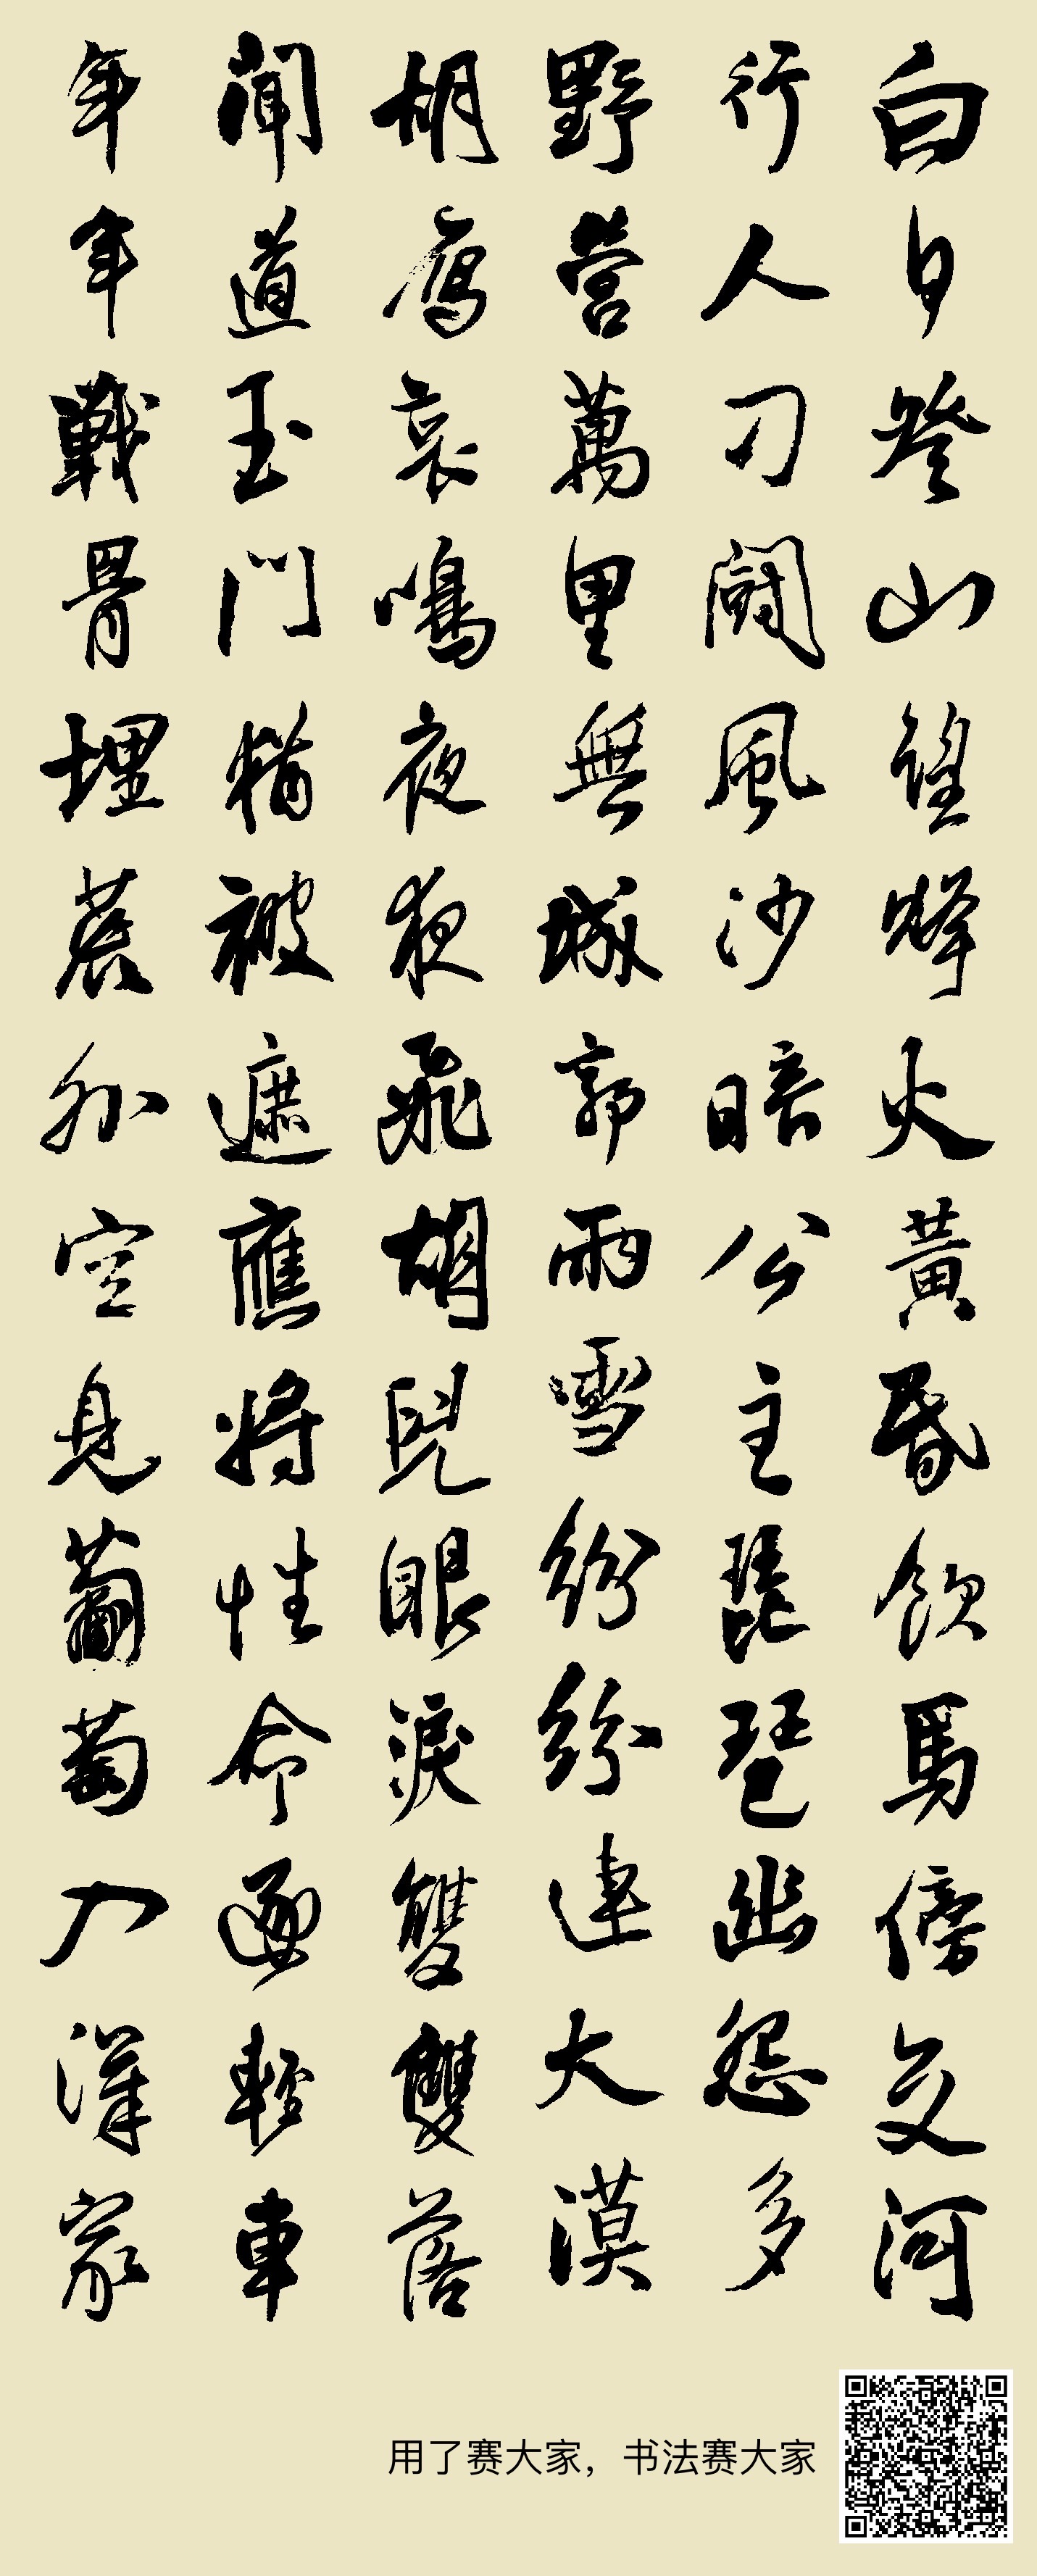 白日登山望烽火黃昏飲馬傍交河
行人刁闘風沙暗公主琵琶幽怨多
野營萬里無城郭雨雪紛紛連大漠
胡鴈哀鳴夜夜飛胡兒眼淚雙雙落
聞道玉門猶被遮應將性命逐輕車
年年戰骨埋荒外空見葡萄入漢家
用了赛大家，书法赛大家